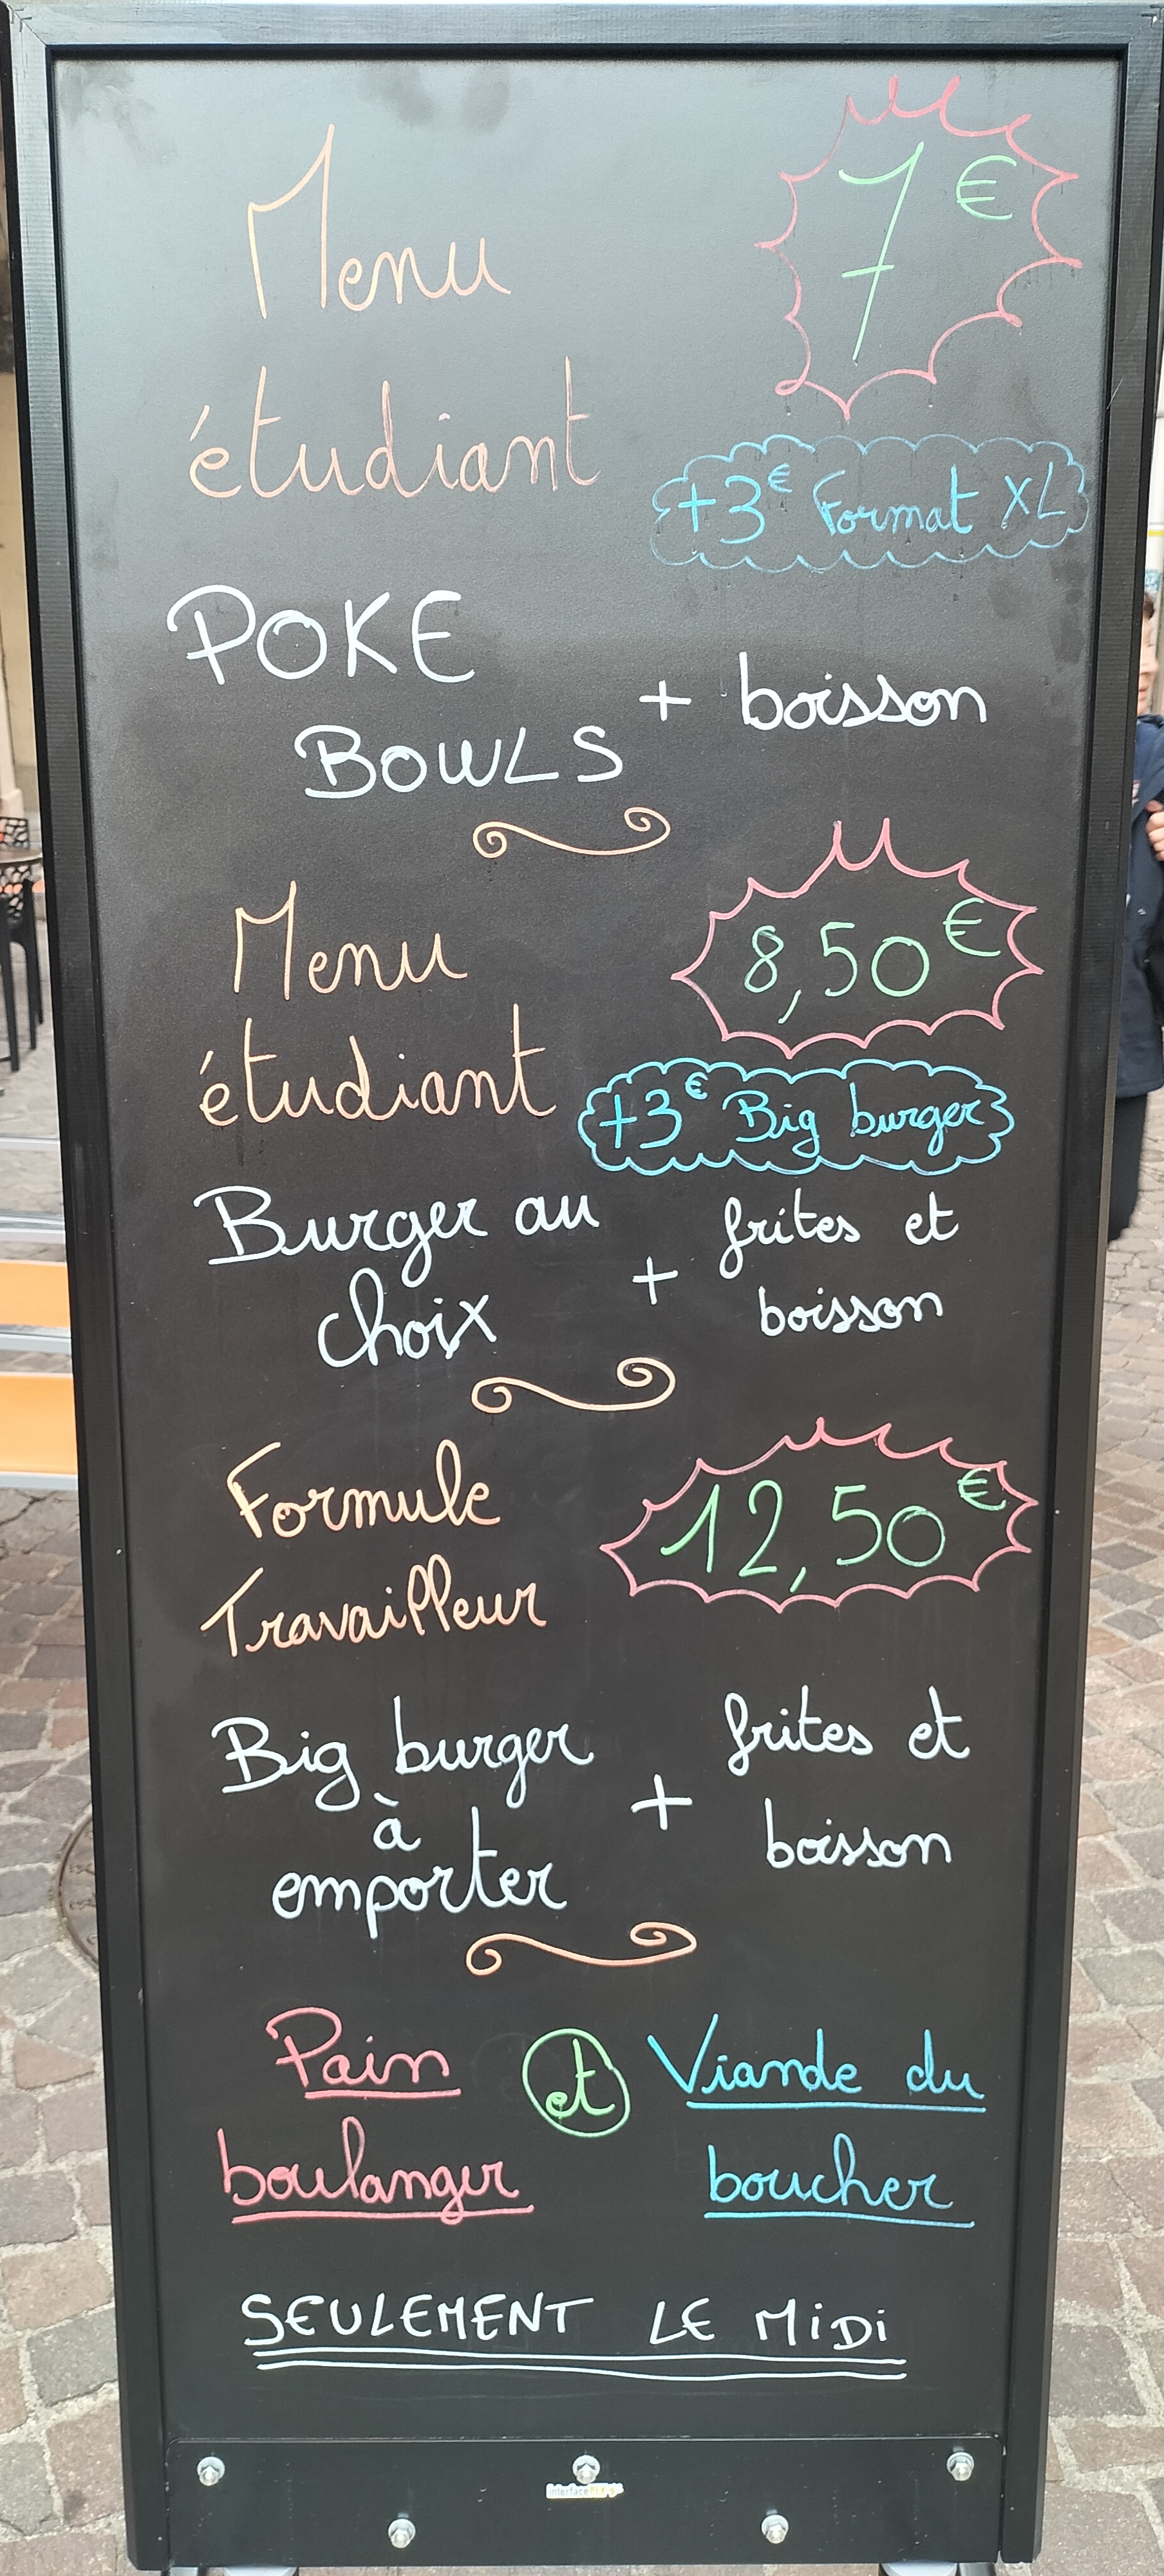 Menu
étudiant
7€
+3€ Format XL
POKE
BOWLS
+ boisson
Menu
étudiant
8,50€
+3€ Big burger
Burger au
choix
+
frites et
boisson
Formule
Travailleur
12,50€
Big burger
à
emporter
+
frites et
boisson
Pain
boulanger
et
Viande du
boucher
SEULEMENT LE MiDi